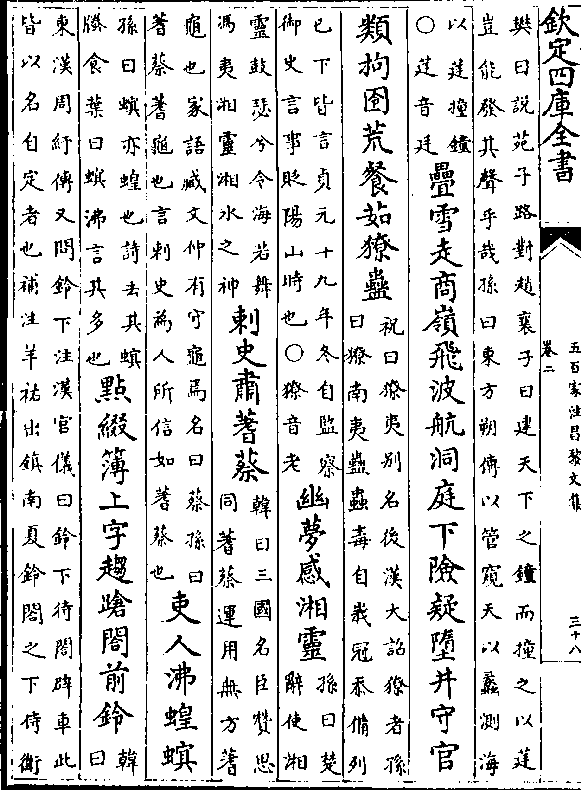 欽定四庫全書
五百家注昌黎文集
卷二
三十八
樊曰說苑子路對趙襄子曰建天下之鐘而撞之以莛
豈能發其聲乎哉孫曰東方朔傳以管窺天以蠡測海
以莛撞鐘
○莛音廷
疊雪走商嶺飛波航洞庭下險疑墮井守官
類拘囹荒餐茹獠蠱
祝曰獠夷別名後漢大詔獠者孫
曰獠南夷蠱蟲毒自峩冠忝備列
已下皆言貞元十九年冬自監察
御史言事貶陽山時也○獠音老
幽夢感湘靈
孫曰楚
辭使湘
靈鼓瑟兮令海若舞
馮夷湘靈湘水之神
刺史肅蓍蔡
韓曰三國名臣贊思
同蓍蔡運用無方蓍
龜也家語臧文仲有守龜焉名曰蔡孫曰
蓍蔡蓍龜也言刺史為人所信如蓍蔡也
吏人沸蝗螟
孫曰螟亦蝗也詩去其螟
螣食葉曰螟沸言其多也
點綴簿上字趨蹌閤前鈴
韓
曰
東漢周紆傳又問鈴下注漢官儀曰鈴下待閤辟車此
皆以名自定者也補注羊祜出鎮南夏鈴閤之下侍衛